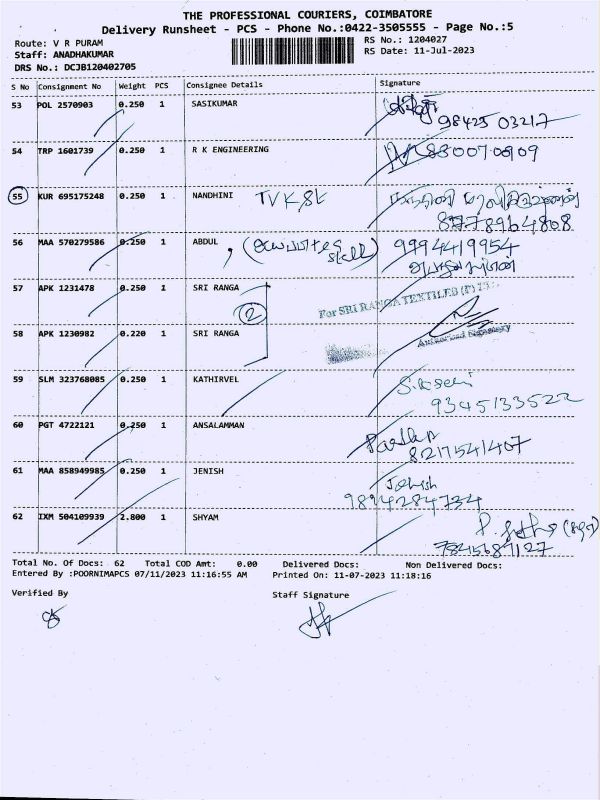 THE PROFESSIONAL COURIERS, COIMBATORE
Delivery Runsheet - PCS - Phone No.:0422-3505555 - Page No.:5
Route: V R PURAM
RS No.: 1204027
Staff: ANADHAKUMAR
RS Date: 11-Jul-2023
DRS No.: DCJB120402705
S No Consignment No Weight PCS Consignee Details Signature
53 POL 2570903 0.250 1 SASIKUMAR
98425 03217
54 TRP 1601739 0.250 1 R K ENGINEERING
55 KUR 695175248 0.250 1 NANDHINI TVK,St
8778964808
56 MAA 570279586 0.250 1 ABDUL 9994419954
57 APK 1231478 0.250 1 SRI RANGA
2
For SRI RANGA TEXTILES (P) LTD.
58 APK 1230982 0.220 1 SRI RANGA
Authorised Signatory
59 SLM 323768085 0.250 1 KATHIRVEL
9345133522
60 PGT 4722121 0.250 1 ANSALAMMAN
8217541407
61 MAA 858949985 0.250 1 JENISH Jenish
9894284734
62 IXM 504109939 2.800 1 SHYAM
7845687127
Total No. Of Docs: 62 Total COD Amt: 0.00 Delivered Docs: Non Delivered Docs:
Entered By :POORNIMAPCS 07/11/2023 11:16:55 AM Printed On: 11-07-2023 11:18:16
Verified By Staff Signature